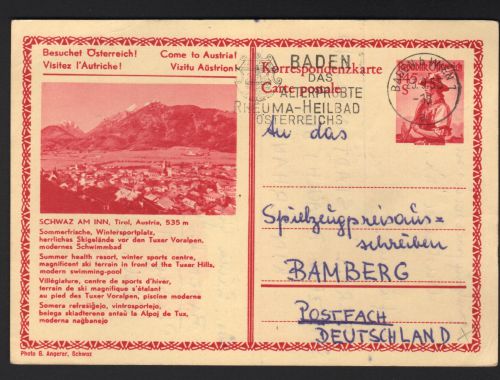 Besuchet Österreich!
Come to Austria!
Visitez l'Autriche!
Vizitu Aŭstrion!
SCHWAZ AM INN, Tirol, Austria, 535 m
Sommerfrische, Wintersportplatz,
herrliches Skigelände vor den Tuxer Voralpen,
modernes Schwimmbad
Summer health resort, winter sports centre,
magnificent ski terrain in front of the Tuxer Hills,
modern swimming-pool
Villégiature, centre de sports d'hiver,
terrain de ski magnifique s'étalant
au pied des Tuxer Voralpen, piscine moderne
Somera refreŝiĝejo, vintrosportejo,
belega skiadterene antaŭ la Alpoj de Tux,
moderna naĝbanejo
Photo B. Angerer, Schwaz
Korrespondenzkarte
Carte postale
BADEN
DAS
ALTERPROBTE
RHEUMA-HEILBAD
ÖSTERREICHS
Republik Österreich
An das
Spielzeugpreisaus-
schreiben
BAMBERG
POSTFACH
DEUTSCHLAND